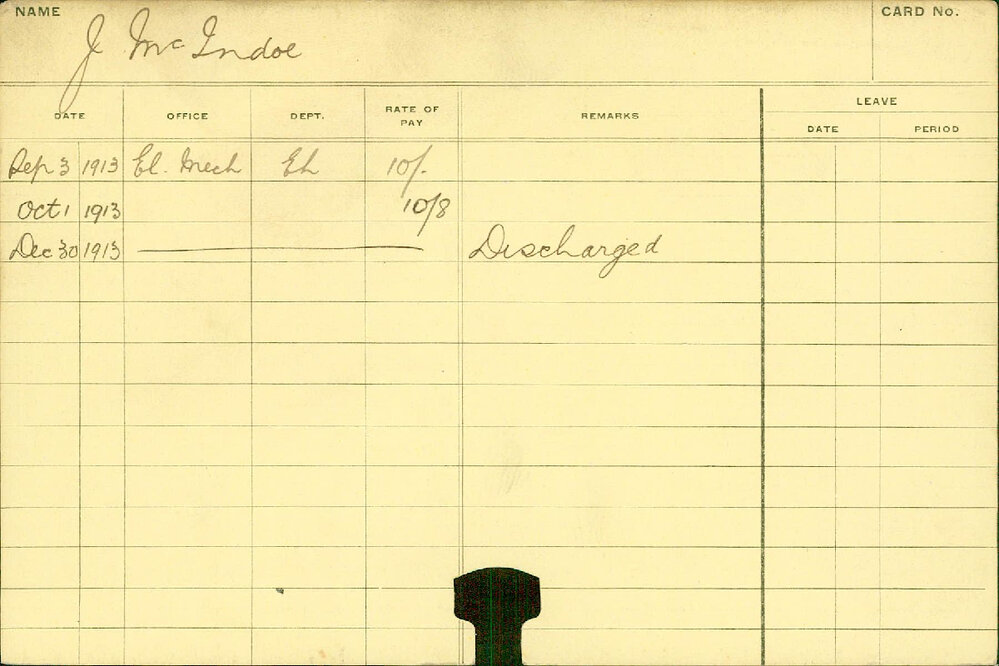 NAME
CARD No.
J McIndoe
DATE OFFICE DEPT. RATE OF PAY REMARKS LEAVE
DATE PERIOD
Sep 3 1913 El. Mech 10/-
Oct 1 1913 10/8
Dec 30 1913 Discharged